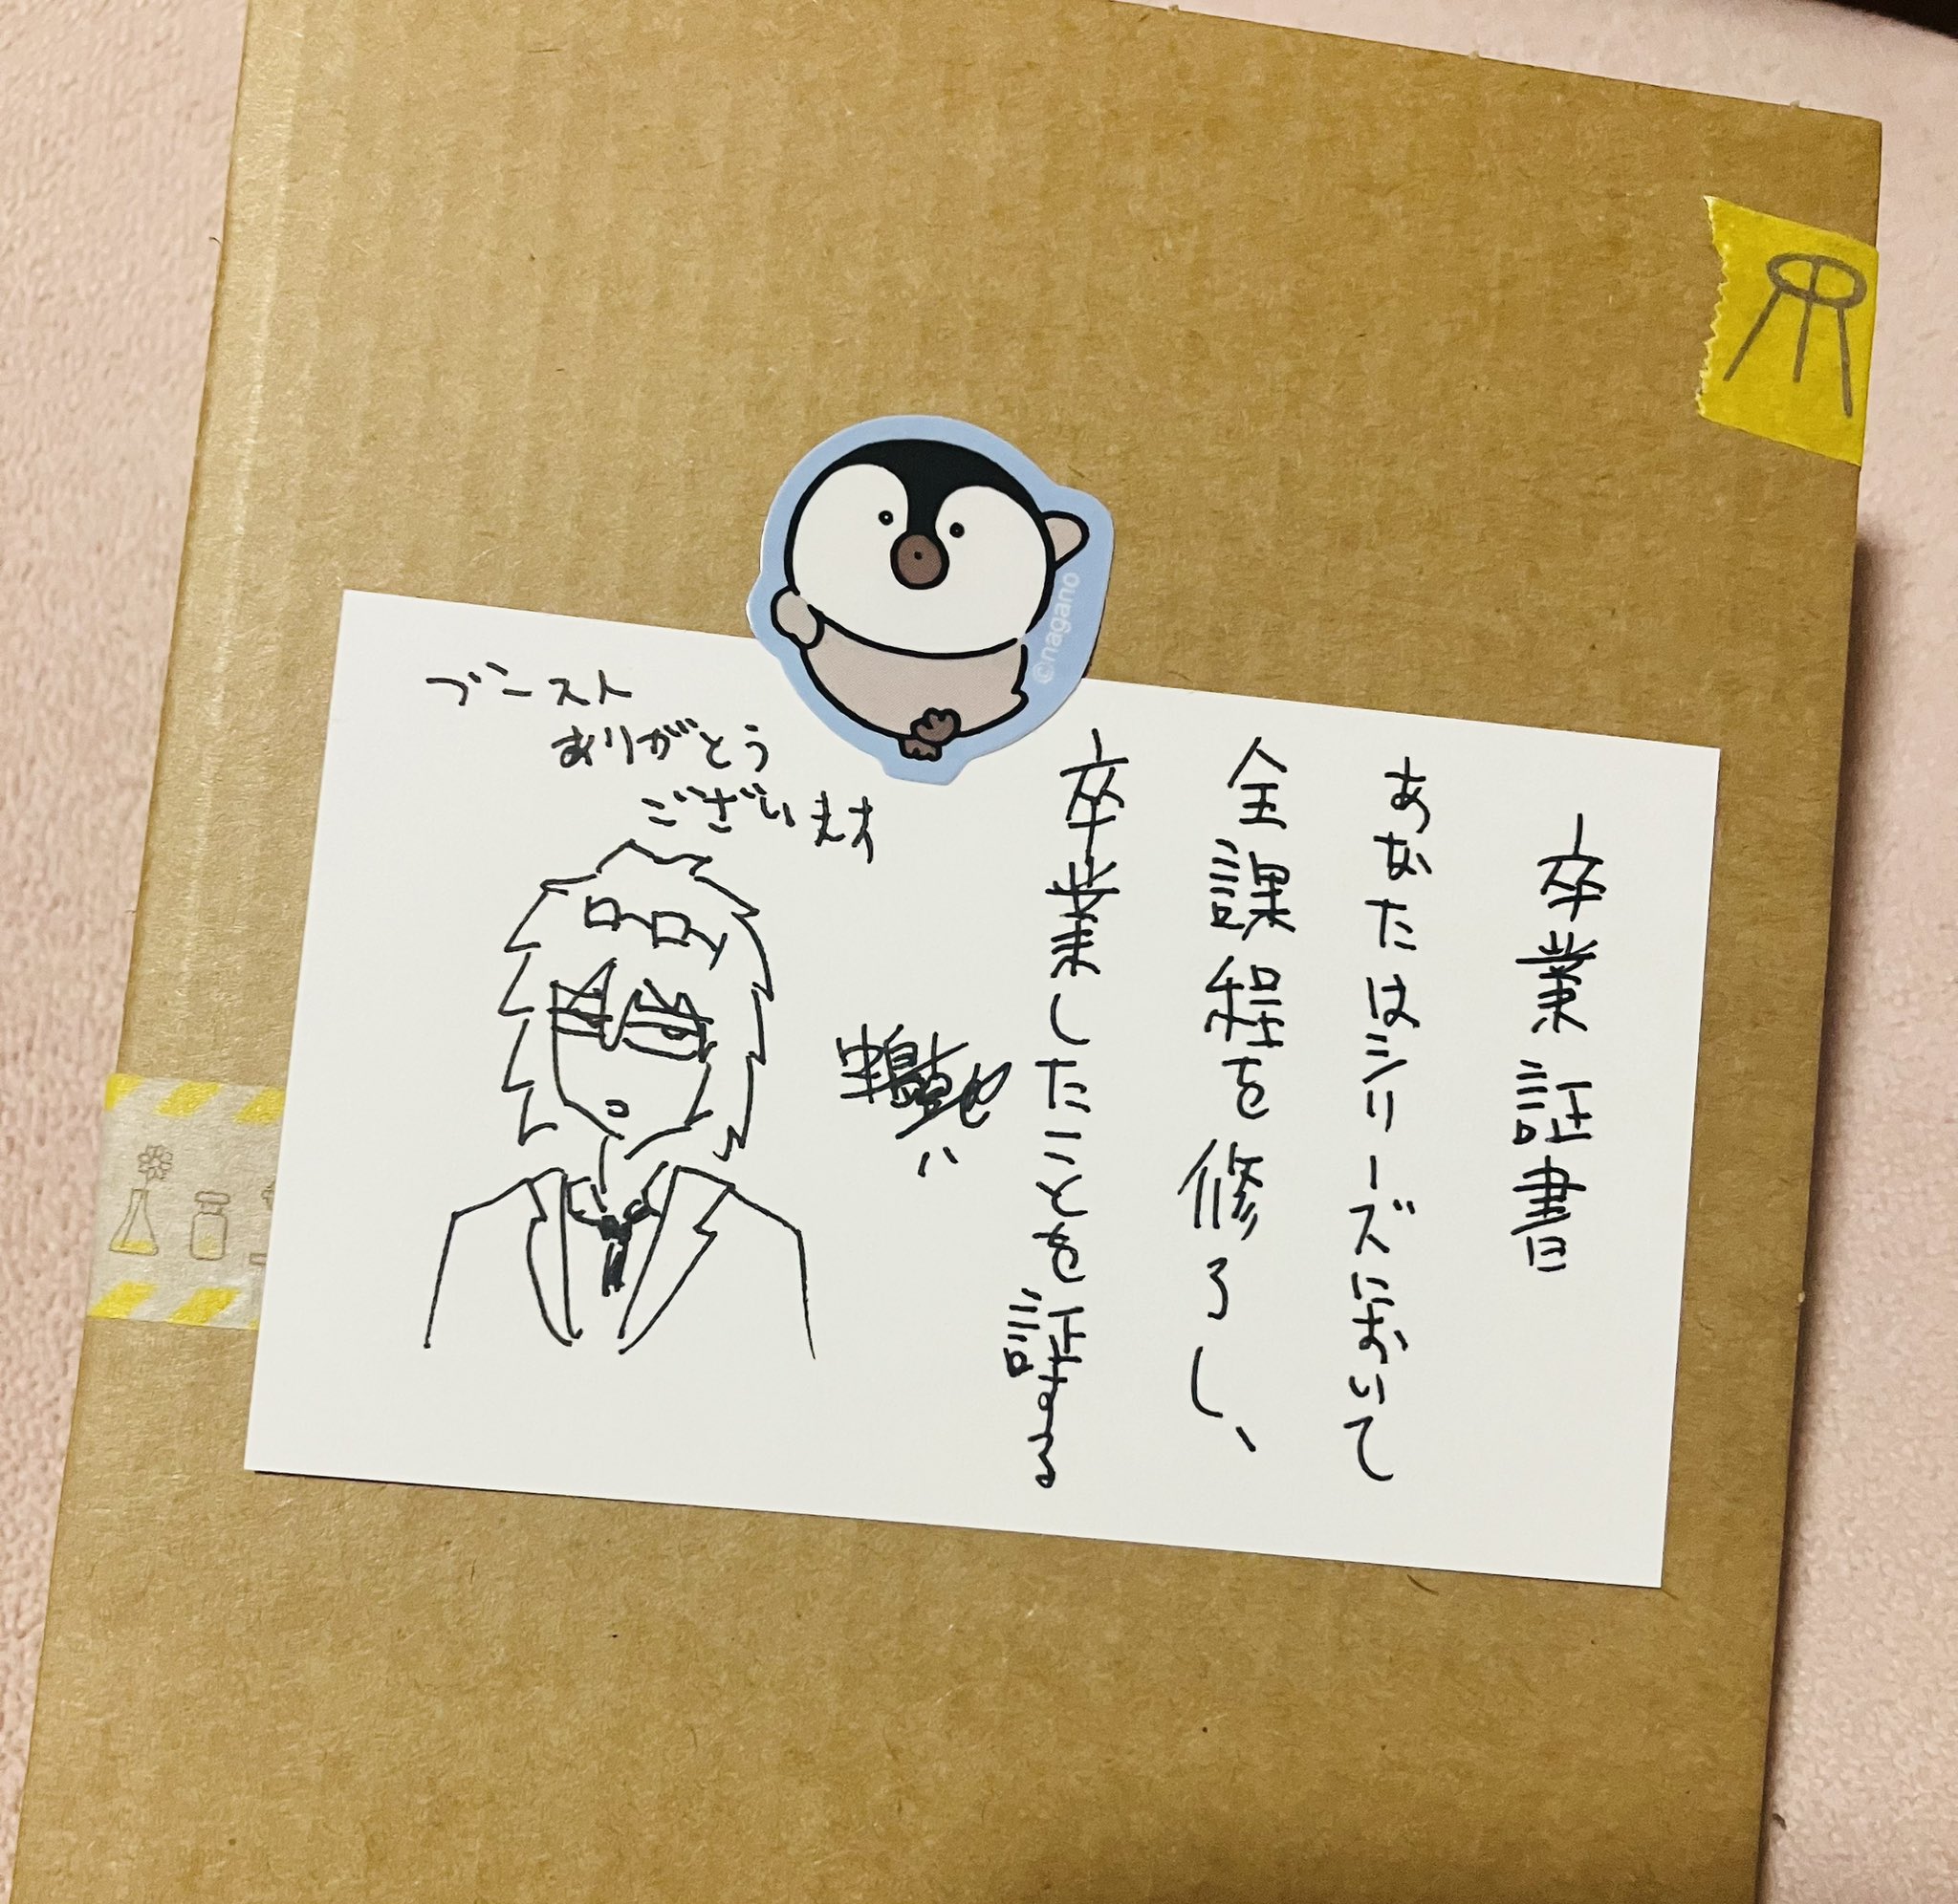 卒業証書
あなたはシリーズにおいて
全課程を修了し、
卒業したことを証する
ブースト
ありがとう
ございます
©nagano